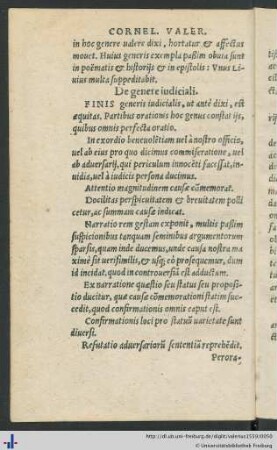 CORNEL. VALER.
in hoc genere valere dixi, hortatur & affectus
mouet. Huius generis exempla paßim obuia sunt
in poëmatis & historijs & in epistolis: Vnus Li-
uius multa suppeditabit.
De genere iudiciali.
FINIS generis iudicialis, ut antè dixi, est
æquitas. Partibus orationis hoc genus constat ijs,
quibus omnis perfecta oratio.
In exordio beneuolētiam uel à nostro officio,
uel ab eius pro quo dicimus commiseratione, uel
ab aduersarij, qui periculum innocēti facessat, in-
uidia, uel à iudicis persona ducimus.
Attentio magnitudinem causæ cōmemorat.
Docilitas perspicuitatem & breuitatem polli
cetur, ac summam causæ indicat.
Narratio rem gestam exponit, multis paßim
suspicionibus tanquam seminibus argumentorum
sparsis, quam inde ducemus, unde causa nostra ma
ximè sit uerisimilis, & usq; eò prosequemur, dum
id incidat, quod in controuersiā est adductum.
Ex narratione quæstio seu status seu proposi-
tio ducitur, quā causæ cōmemorationi statim suc-
cedit, quod confirmationis omnis caput est.
Confirmationis loci pro statuū uarietate sunt
diuersi.
Refutatio aduersariorū sententiā reprehēdit.
Perora-
http://dl.ub.uni-freiburg.de/diglit/valerius1551/0050
© Universitätsbibliothek Freiburg